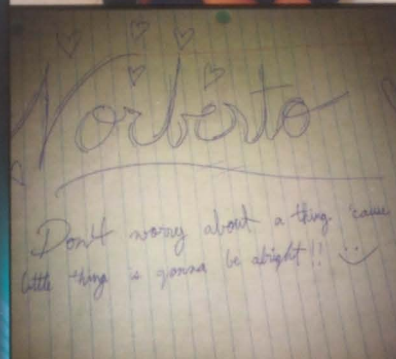 Norberto
Don't worry about a thing. 'cause
little thing is gonna be alright!! :)